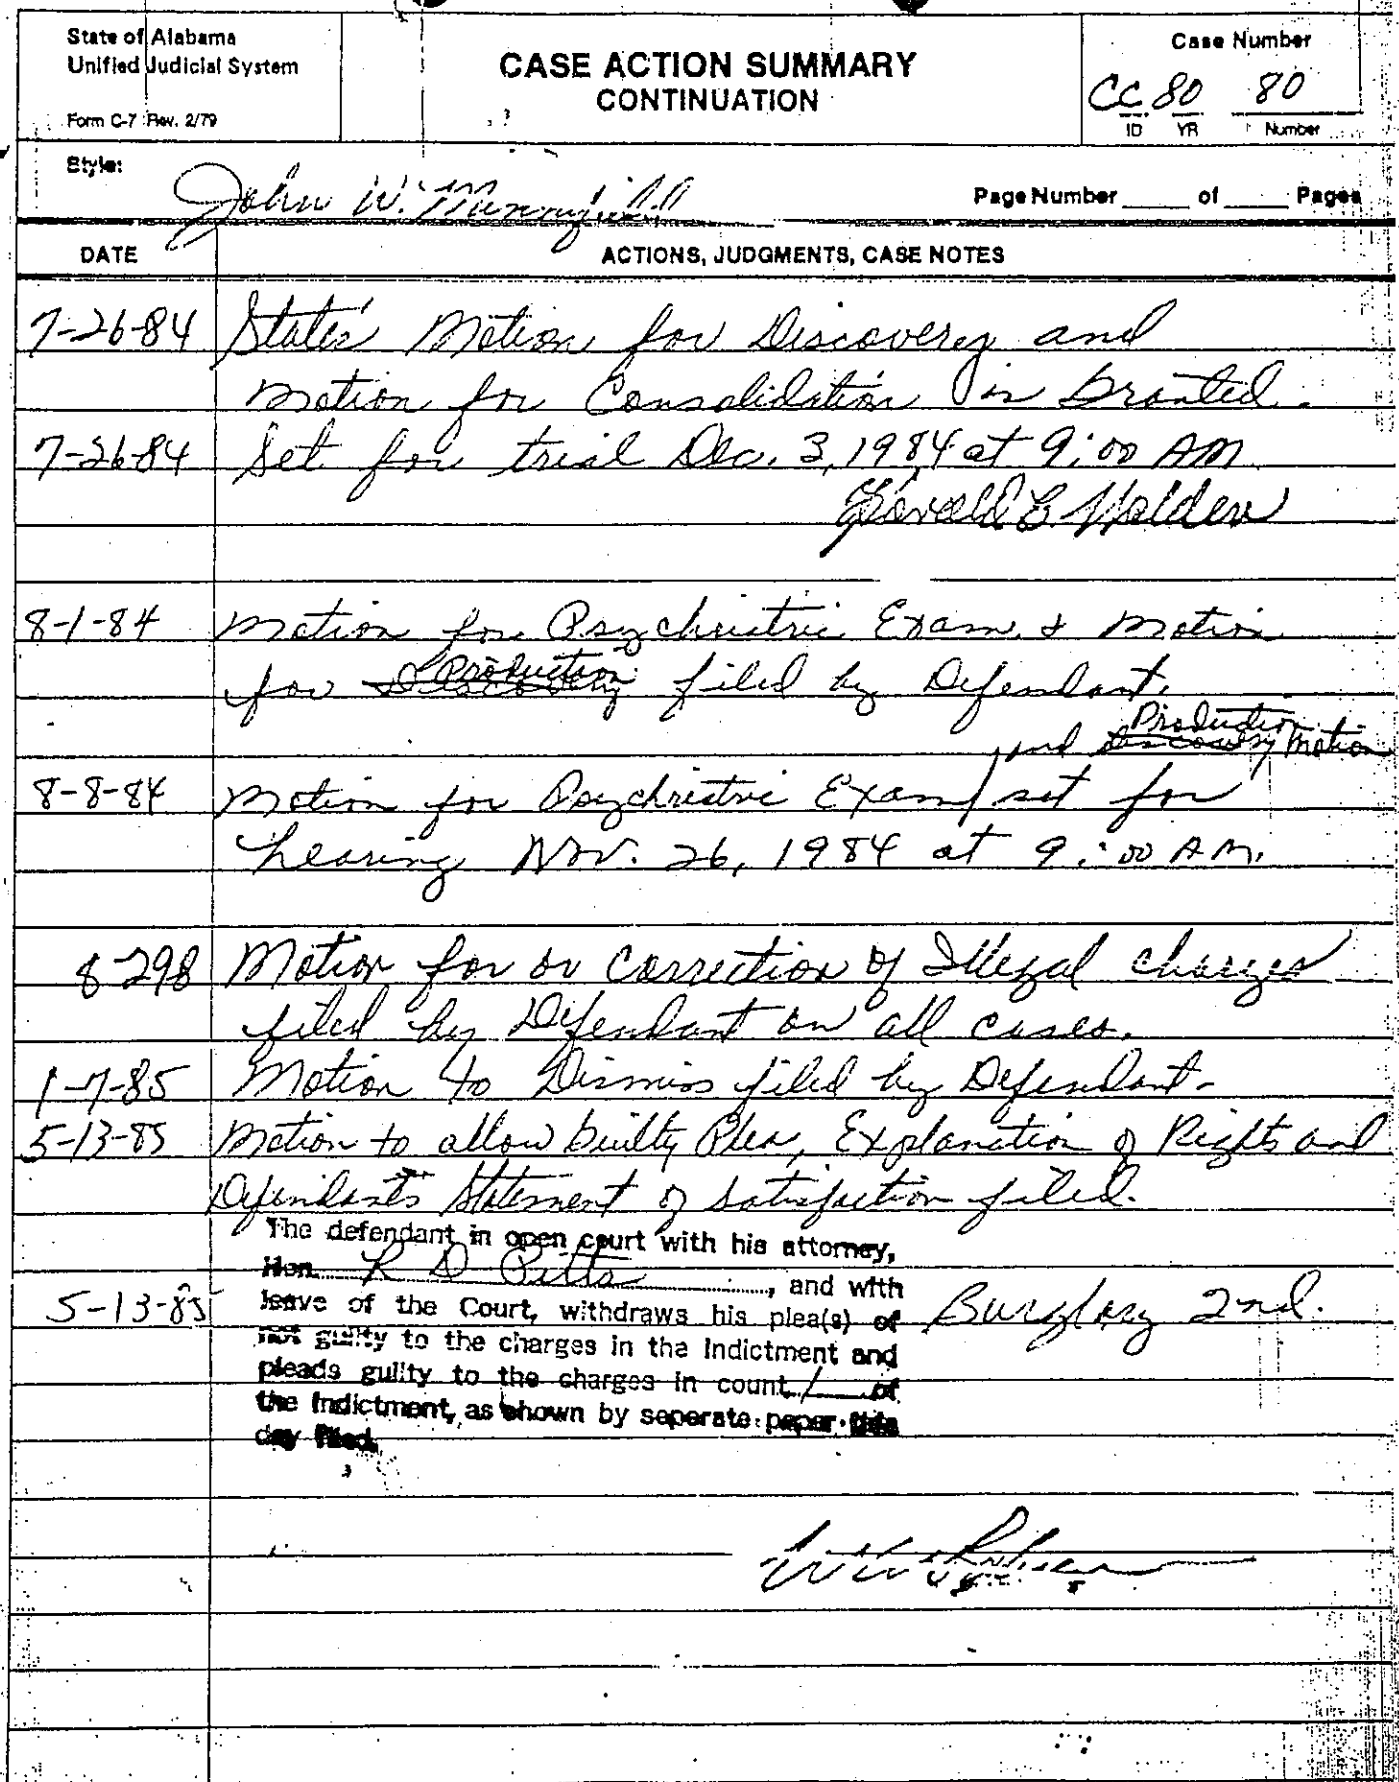 State of Alabama
Unified Judicial System
Form C-7 Rev. 2/79
CASE ACTION SUMMARY
CONTINUATION
Case Number
CC 80 80
ID YR Number
Style:
John W.
Page Number ____ of ____ Pages
DATE
ACTIONS, JUDGMENTS, CASE NOTES
7-26-84 State's Motion for Discovery and
Motion for Consolidation is Granted.
7-26-84 Set for trial Dec. 3, 1984 at 9:00 AM
Gerald E. Holden
8-1-84 Motion for Psychristric Exam & Motion
for Discovery Production filed by Defendant.
and Discovery Production Motion
8-8-84 Motion for Psychristric Exam / set for
hearing Nov. 26, 1984 at 9:00 AM.
8-298 Motion for or Correction of Illegal charges
filed by Defendant on all cases.
1-7-85 Motion to Dismiss filed by Defendant.
5-13-85 Motion to allow Guilty Plea, Explanation of Rights and
Defendants Statement of Satisfaction filed.
The defendant in open court with his attorney,
Hon. R D Pitts, and with
5-13-85 leave of the Court, withdraws his plea(s) of Burglary 2nd.
not guilty to the charges in the Indictment and
pleads guilty to the charges in count 1 of
the Indictment, as shown by seperate paper this
day filed.